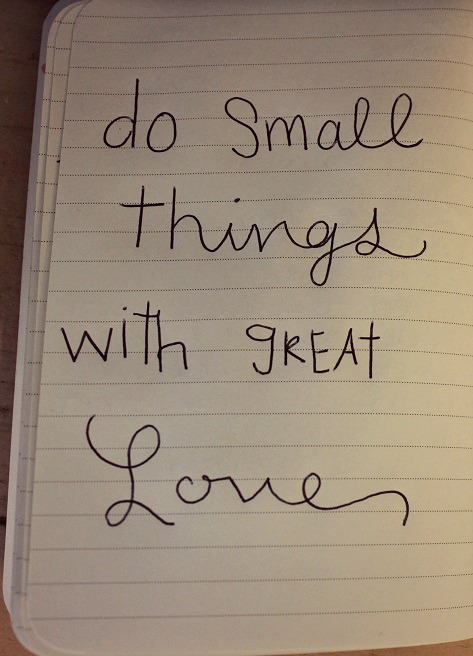 do small
things
with gREAt
Love